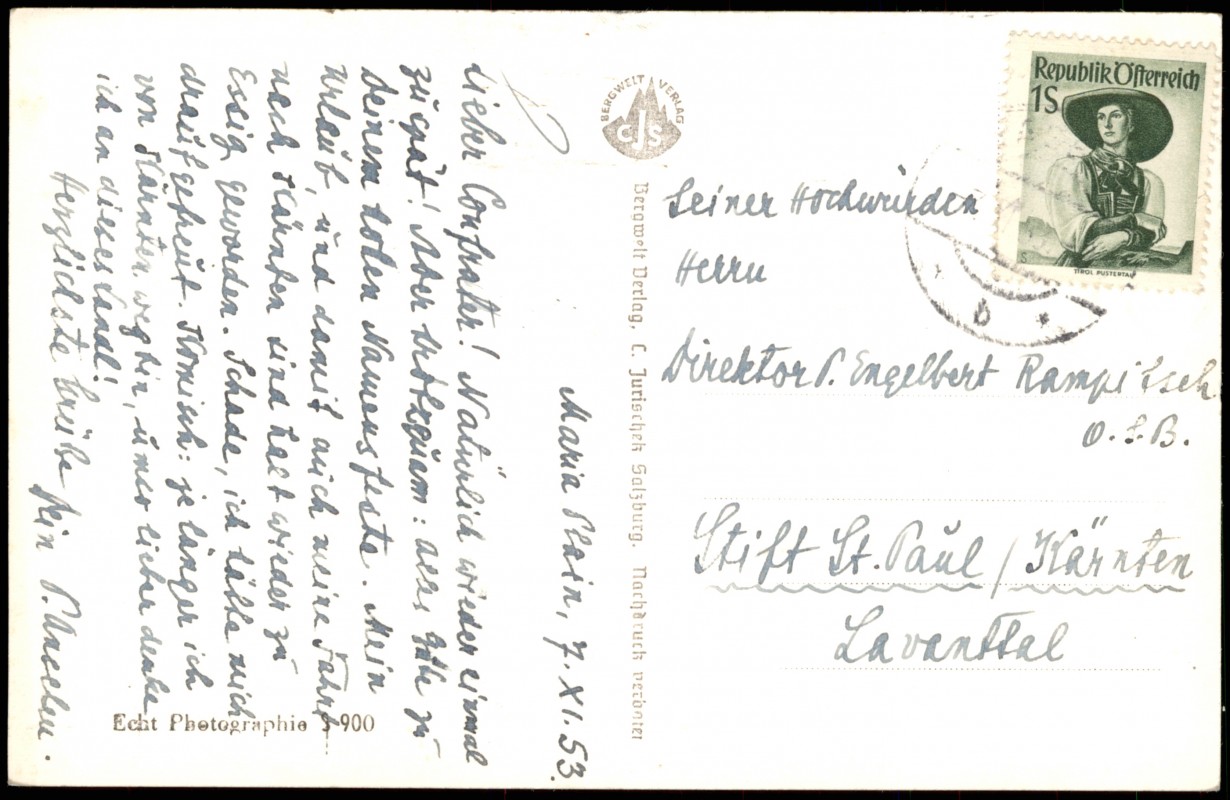 Maria Plain, 7. XI. 53.
Lieber Confrater! Natürlich wieder einmal
zu spät! Aber trotzdem: alles Gute zu
Deinem hohen Namensfeste. Mein
Urlaub, und damit auch meine Fahrt
nach Kärnten sind halt wieder zu
Essig geworden. Schade, ich hätte mich
drauf gefreut. Komisch: je länger ich
von Kärnten weg bin, umso lieber denke
ich an dieses Landl!
Herzlichste Grüße Dein P. Anselm.
Echt Photographie 3-900
BERGWELT VERLAG
CJS
Bergwelt Verlag, C. Jurischek Salzburg. Nachdruck verboten
Republik Österreich
1S
TIROL PUSTERTAL
b *
Seiner Hochwürden
Herrn
Direktor P. Engelbert Rampitsch
O.S.B.
Stift St. Paul / Kärnten
Lavanttal